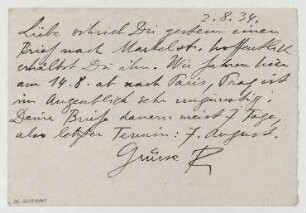 2.8.34.
Liebe schrieb Dir gestern einen
Brief nach hoffentlich
erhältst Du ihn. Wir fahren
am 14.8. ab nach Paris, Prag ist
im Augenblick sehr ungünstig.
Deine Briefe dauern meist 7 Tage,
also letzter Termin: 7. August.
Grüsse R